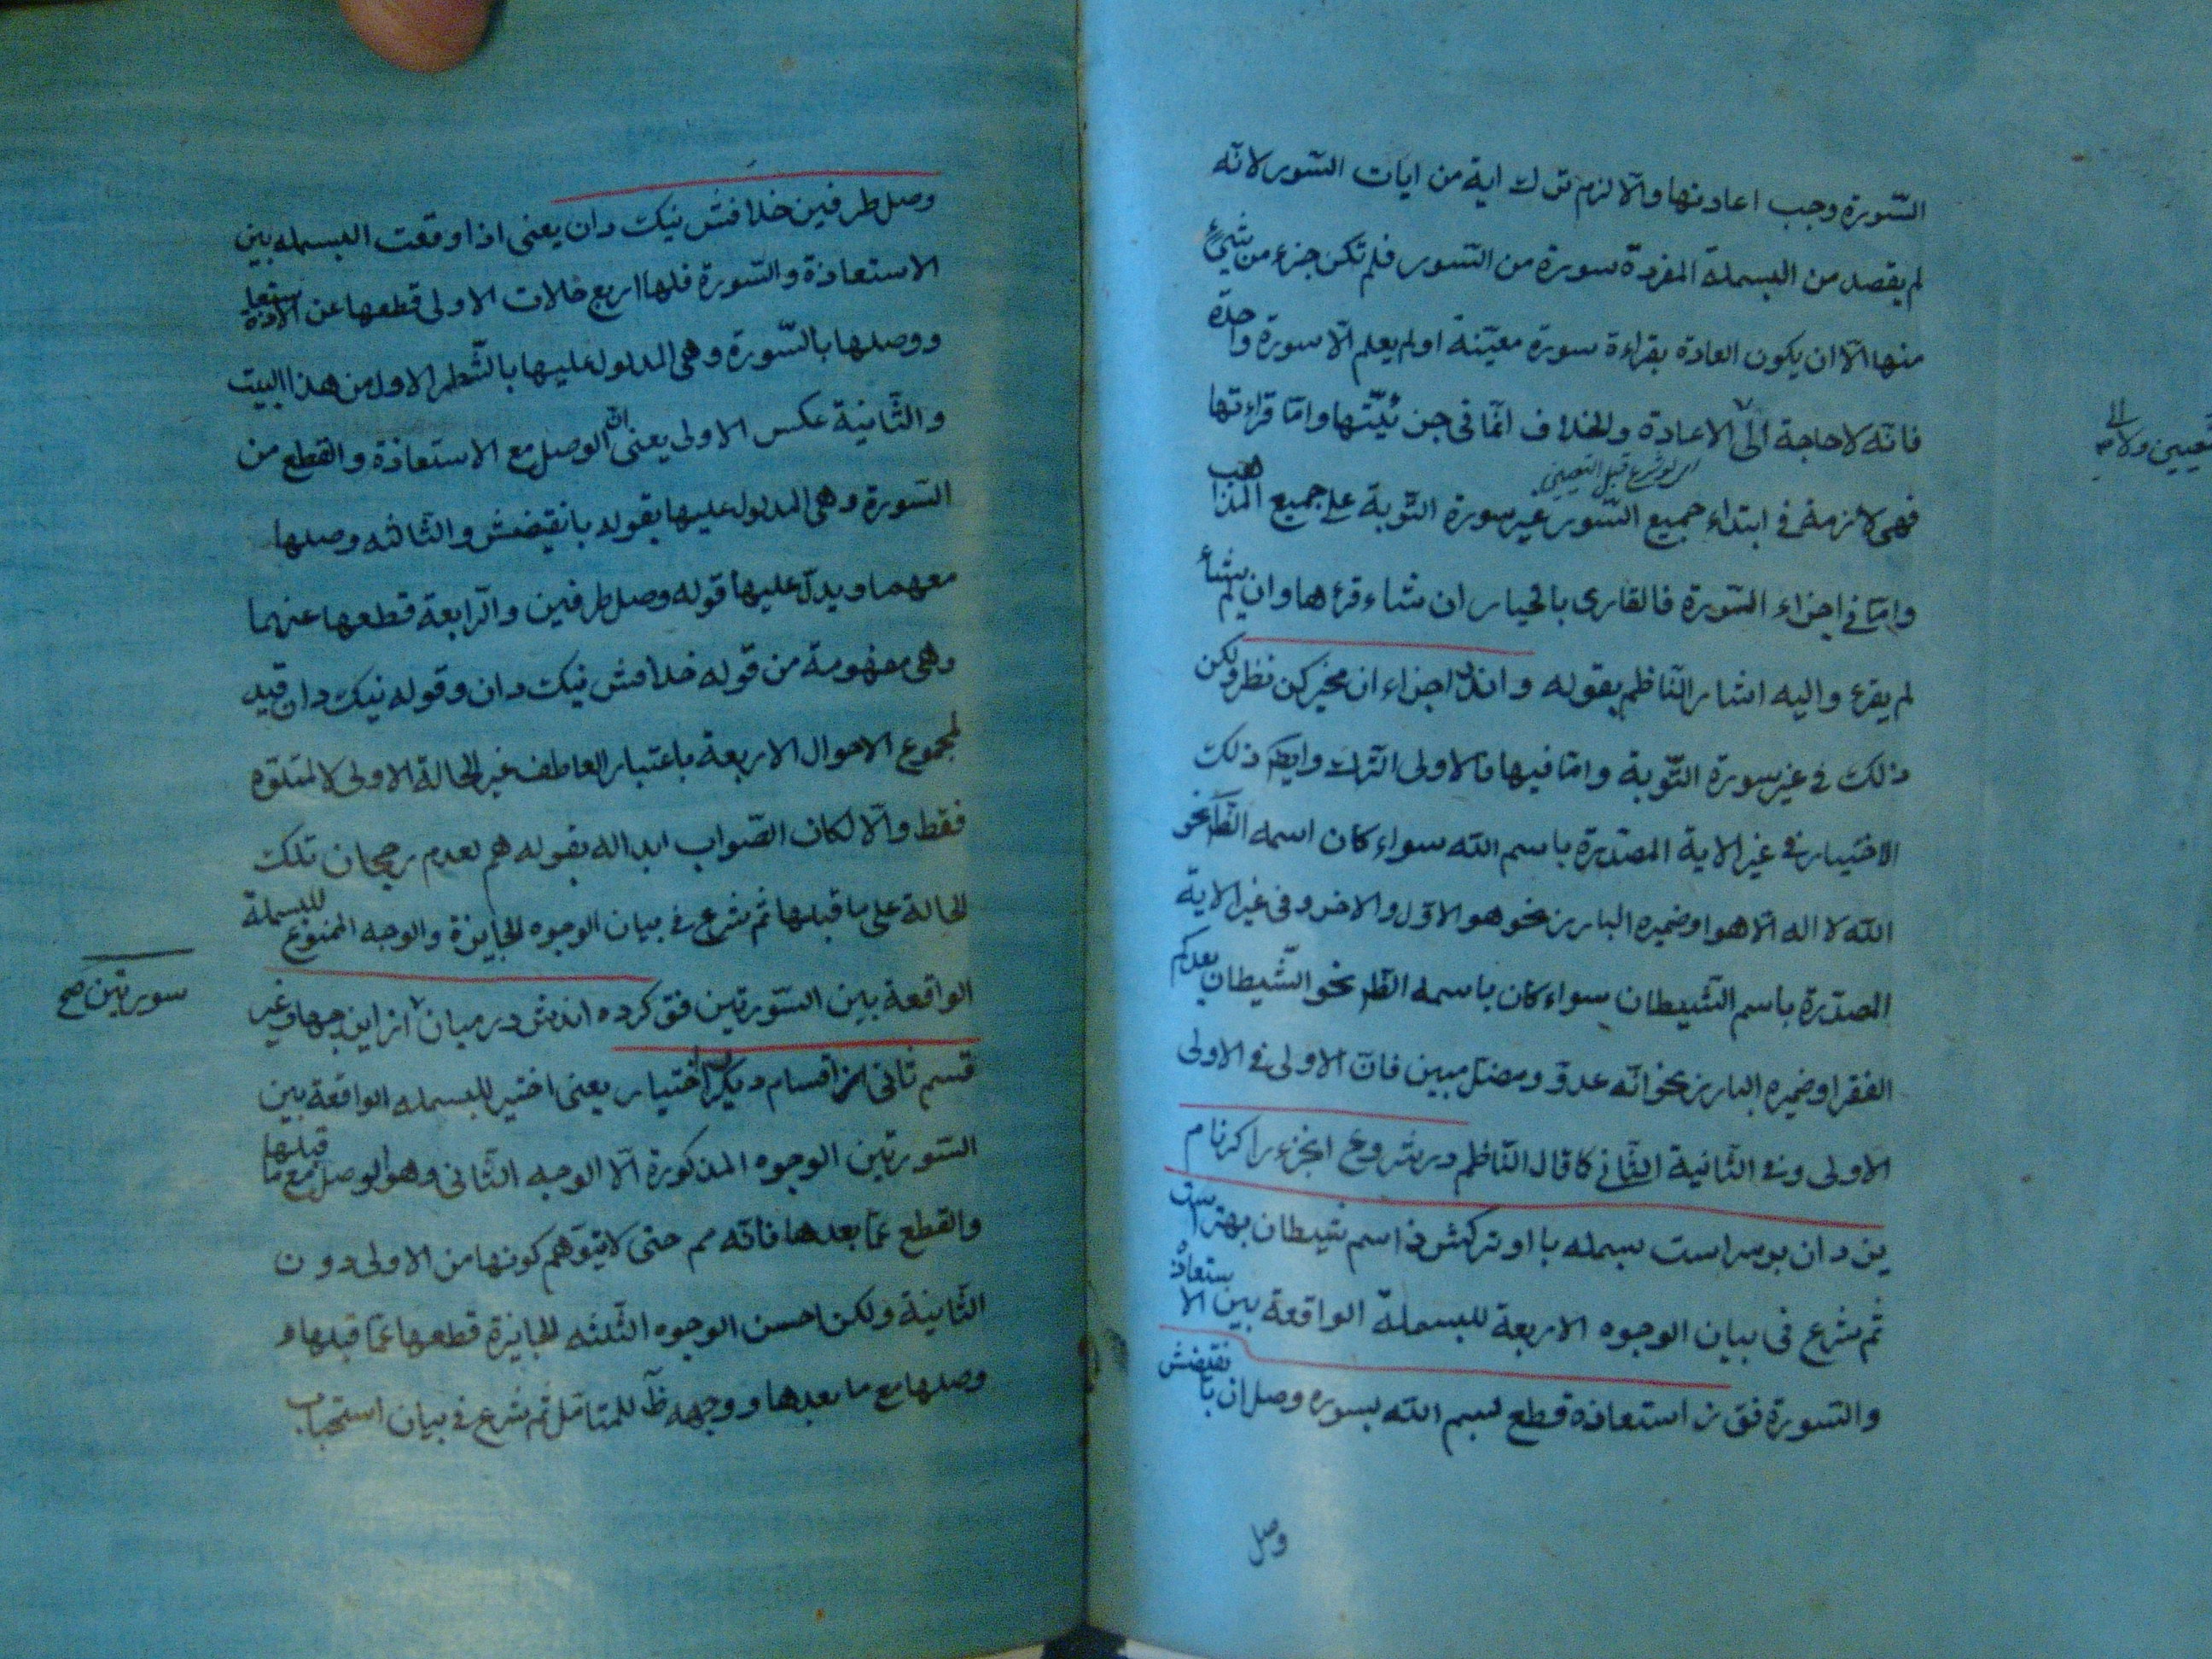 السّورة وجب اعادتها والّا لزم ترك اية من ايات السّور لانّه
لم يقصد من البسملة المفردة سورة من السّور فلم تكن جزء من شيء
منها الّا ان يكون العادة بقراءة سورة معيّنة او لم يعلم الّا سورة واحدة
فانّه لا حاجة الى الاعادة والخلاف انّما فى جزئيّتها وامّا قراءتها
اى لو شرع قبل التعيين
فهى لازمة فى ابتداء جميع السّور غير سورة التّوبة على جميع المذاهب
وامّا فى اجزاء السّورة فالقارى بالخيار ان شاء قرءها وان لم يشأ
لم يقرء واليه اشار النّاظم بقوله واندر اجزاء ان مخيّر كن نظر ولكن
ذلك فى غير سورة التّوبة وامّا فيها فالاولى التّرك وايضا ذلك
الاختيار فى غير الاية المصدّرة باسم الله سواء كان اسمه الظّاهر نحو
الله لا اله الّا هو او ضميره البارز نحو هو الاوّل والاخر وفى غير الاية
المصدّرة باسم الشّيطان سواء كان باسمه الظّاهر نحو الشّيطان يعدكم
الفقر او ضميره البارز نحو انّه عدوّ ومضلّ مبين فانّ الاولى فى الاولى
الاولى وفى الثّانية الثّانى كما قال النّاظم در شروع ابجزء را كرنام
ين دان بوسراست بسمله با او تركش در اسم شيطان بهتراست
ثم شرع فى بيان الوجوه الاربعة للبسملة الواقعة بين الاستعاذة
والسّورة فق ز استعاذه قطع بسم الله بسوره وصل ان با نقيضش
وصل
وصل طرفين خلافش نيك دان يعنى اذا وقعت البسمله بين
الاستعاذة والسّورة فلها اربع حالات الاولى قطعها عن الاستعاذة
ووصلها بالسّورة وهى المدلول عليها بالشّطر الاول من هذا البيت
والثّانية عكس الاولى يعنى انّ الوصل مع الاستعاذة والقطع من
السّورة وهى المدلول عليها بقوله با نقيضش والثّالثه وصلها
معهما ويدلّ عليها قوله وصل طرفين والرّابعة قطعها عنهما
وهى مفهومة من قوله خلافش نيك دان وقوله نيك دان قيد
لمجموع الاحوال الاربعة باعتبار العاطف غير الحالة الاولى لا لمتلوّه
فقط والّا لكان الصّواب ابداله بقوله هم لعدم رجحان تلك
الحالة على ما قبلها ثم شرع فى بيان الوجوه الجايزة والوجه الممنوع للبسملة
الواقعة بين السّورتين فق كرده اندش در ميان از اين وجهها وغير
سورتين صح
قسم ثانى از اقسام ديكر اختيار يعنى اختير للبسمله الواقعة بين
السّورتين الوجوه المذكورة الّا الوجه الثّانى وهو الوصل مع ما قبلها
والقطع عمّا بعدها فانّه مم حتى لا يتوهّم كونها من الاولى دون
الثّانية ولكن احسن الوجوه الثّلثه الجايزة قطعها عمّا قبلها و
وصلها مع ما بعدها ووجهه ظ للمتامّل ثم شرع فى بيان استحباب